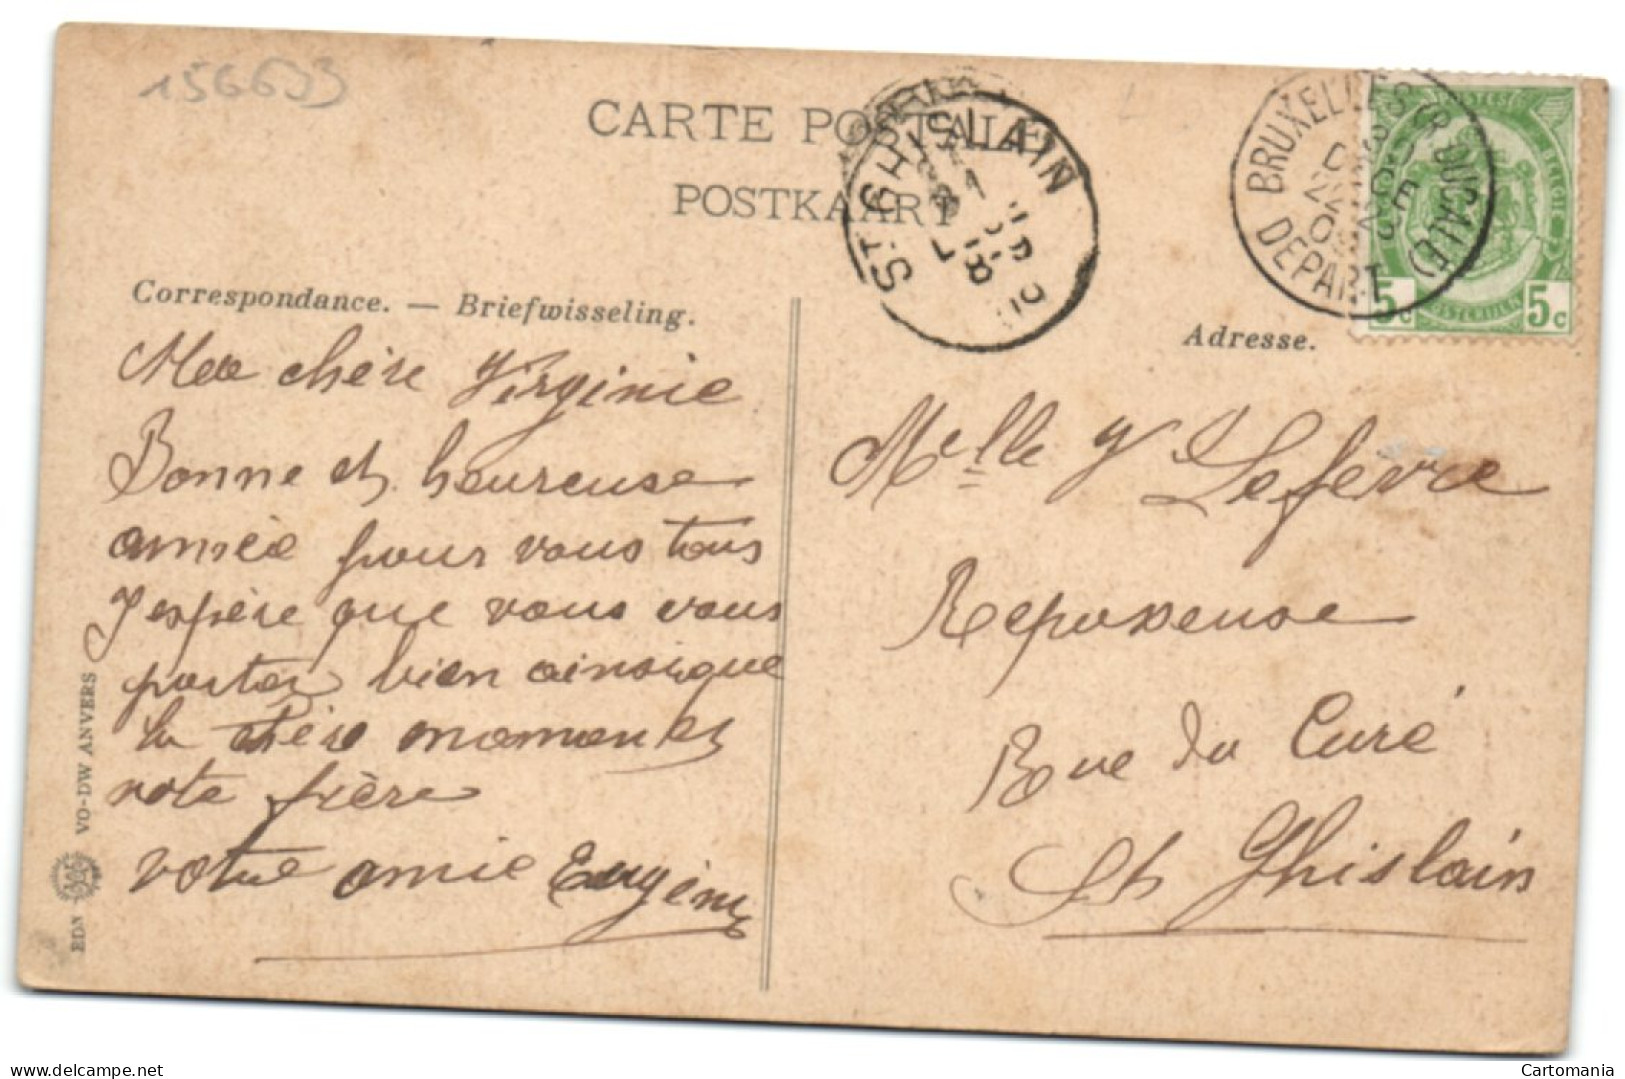 156633
CARTE POSTALE
POSTKAART
Correspondance. — Briefwisseling.
Adresse.
ST GHISLAIN
BRUXELLES (R. DUCALE)
DEPART
5c 5c
Ma chère Virginie
Bonne et heureuse
année pour vous tous
J'espère que vous vous
portez bien ainsi que
la chère maman et
note frère
votre amie Eugénie
Melle V Lefèvre
Repasseuse
Rue du Curé
St Ghislain
EDN VO-DW ANVERS
Cartomania